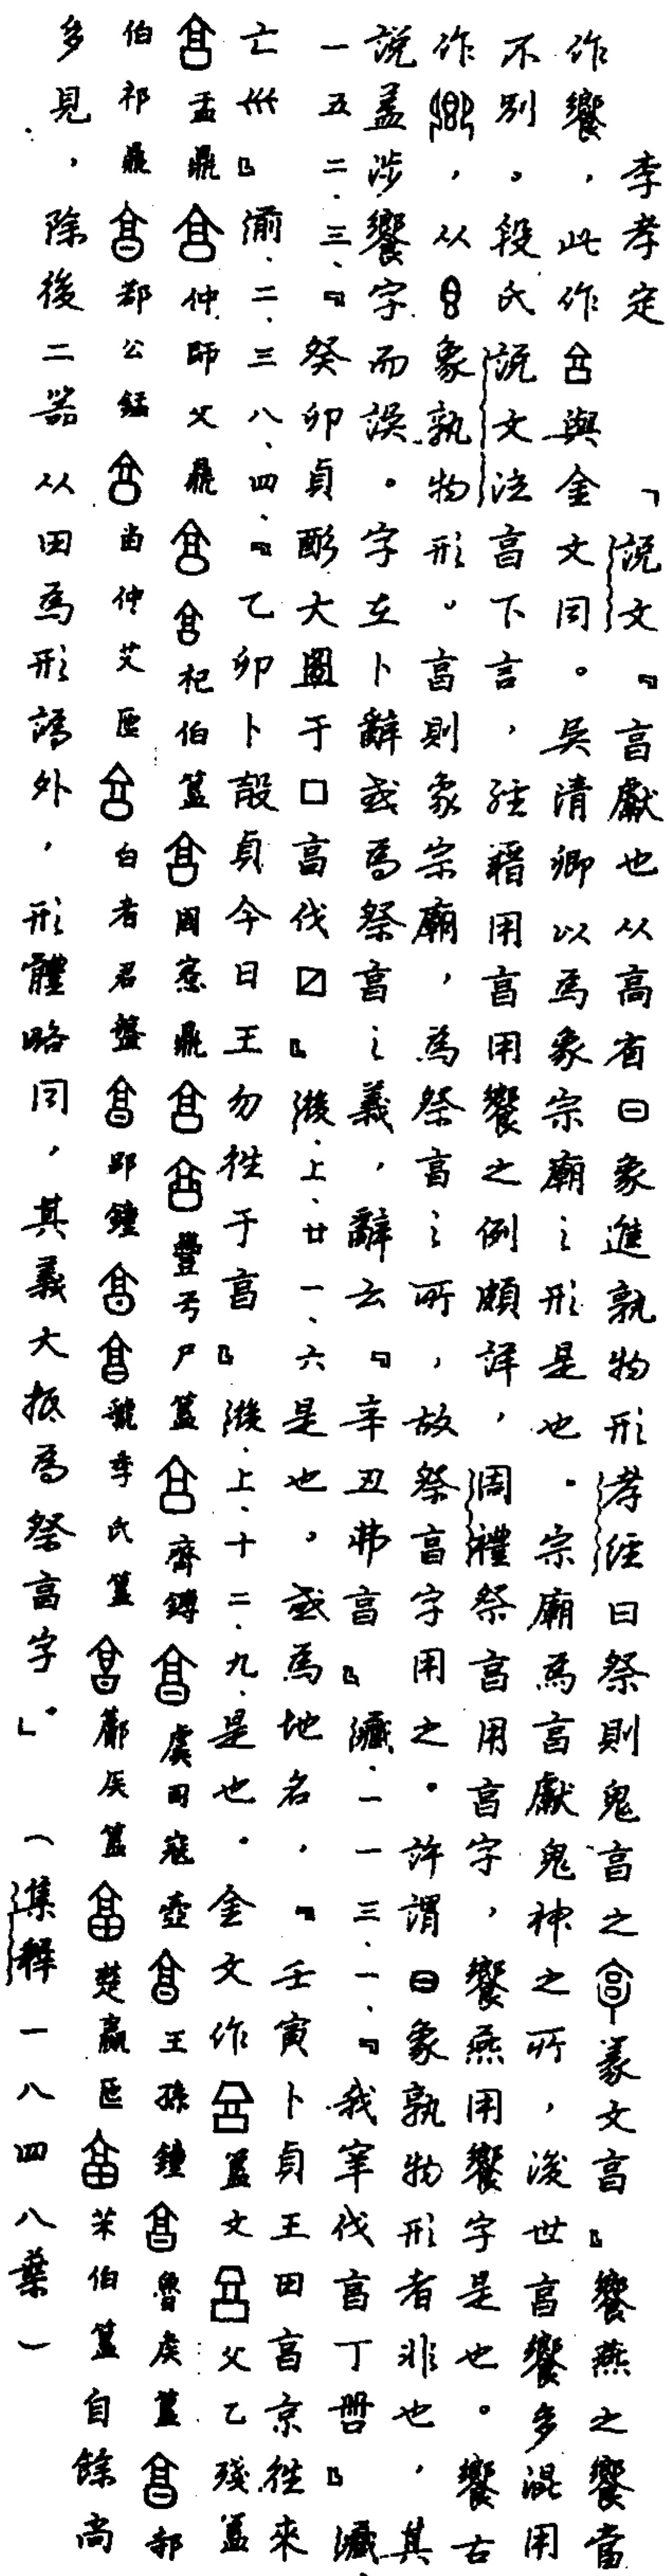 李孝定「說文『亯獻也从高省曰象進孰物形孝經曰祭則鬼亯之篆文亯』饗燕之饗當
作饗，此作與金文同。吳清卿以為象宗廟之形是也。宗廟為亯獻鬼神之所，後世亯饗多混用
不別。段氏說文注亯下言，經籍用亯用饗之例頗詳，周禮祭亯用亯字，饗燕用饗字是也。饗古
作，从象孰物形。亯則象宗廟，為祭亯之所，故祭亯字用之。許謂曰象孰物形者非也，其
說蓋涉饗字而誤。字在卜辭或為祭亯之義，辭云『辛丑弗亯』藏、一一三、一、『我宰伐亯丁』藏、
一五二、三、『癸卯貞酌大于囗亯伐』後、上、廿一、六是也，或為地名，『壬寅卜貞王田亯京往來
亡巛』前、二、三八、四、『乙卯卜㱿貞今日王勿往于亯』後、上、十二、九、是也。金文作簋文父乙殘簋
盂鼎仲師父鼎杞伯簋周窓鼎豐兮尸簋齊鎛虞司寇壺王孫鐘魯侯簋邾
伯祁鼎都公錳甾仲艾匜白者君盤郘鐘虢季氏簋鄘侯簋楚嬴匜芈伯簋自餘尚
多見，除後二器从田為形譌外，形體略同，其義大抵為祭亯字。」（集釋一八四八葉）